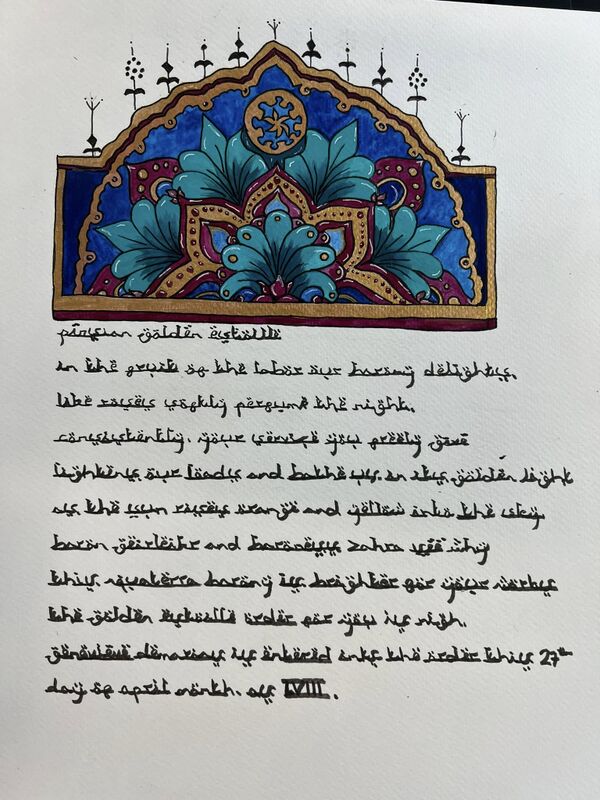 persian golden estoille
in the fruit of the labor our barony delights.
like roses softly perfume the night.
consistently, your service you freely gave
lightens our loads and bathe us in its golden light
as the sun rises orange and yellow into the sky.
baron geirleikr and baroness zahra see why
this aquaterra barony is brighter for your works
the golden estoille order for you is nigh.
demaray is entered into the order this 27th
day of april month. as LVIII.